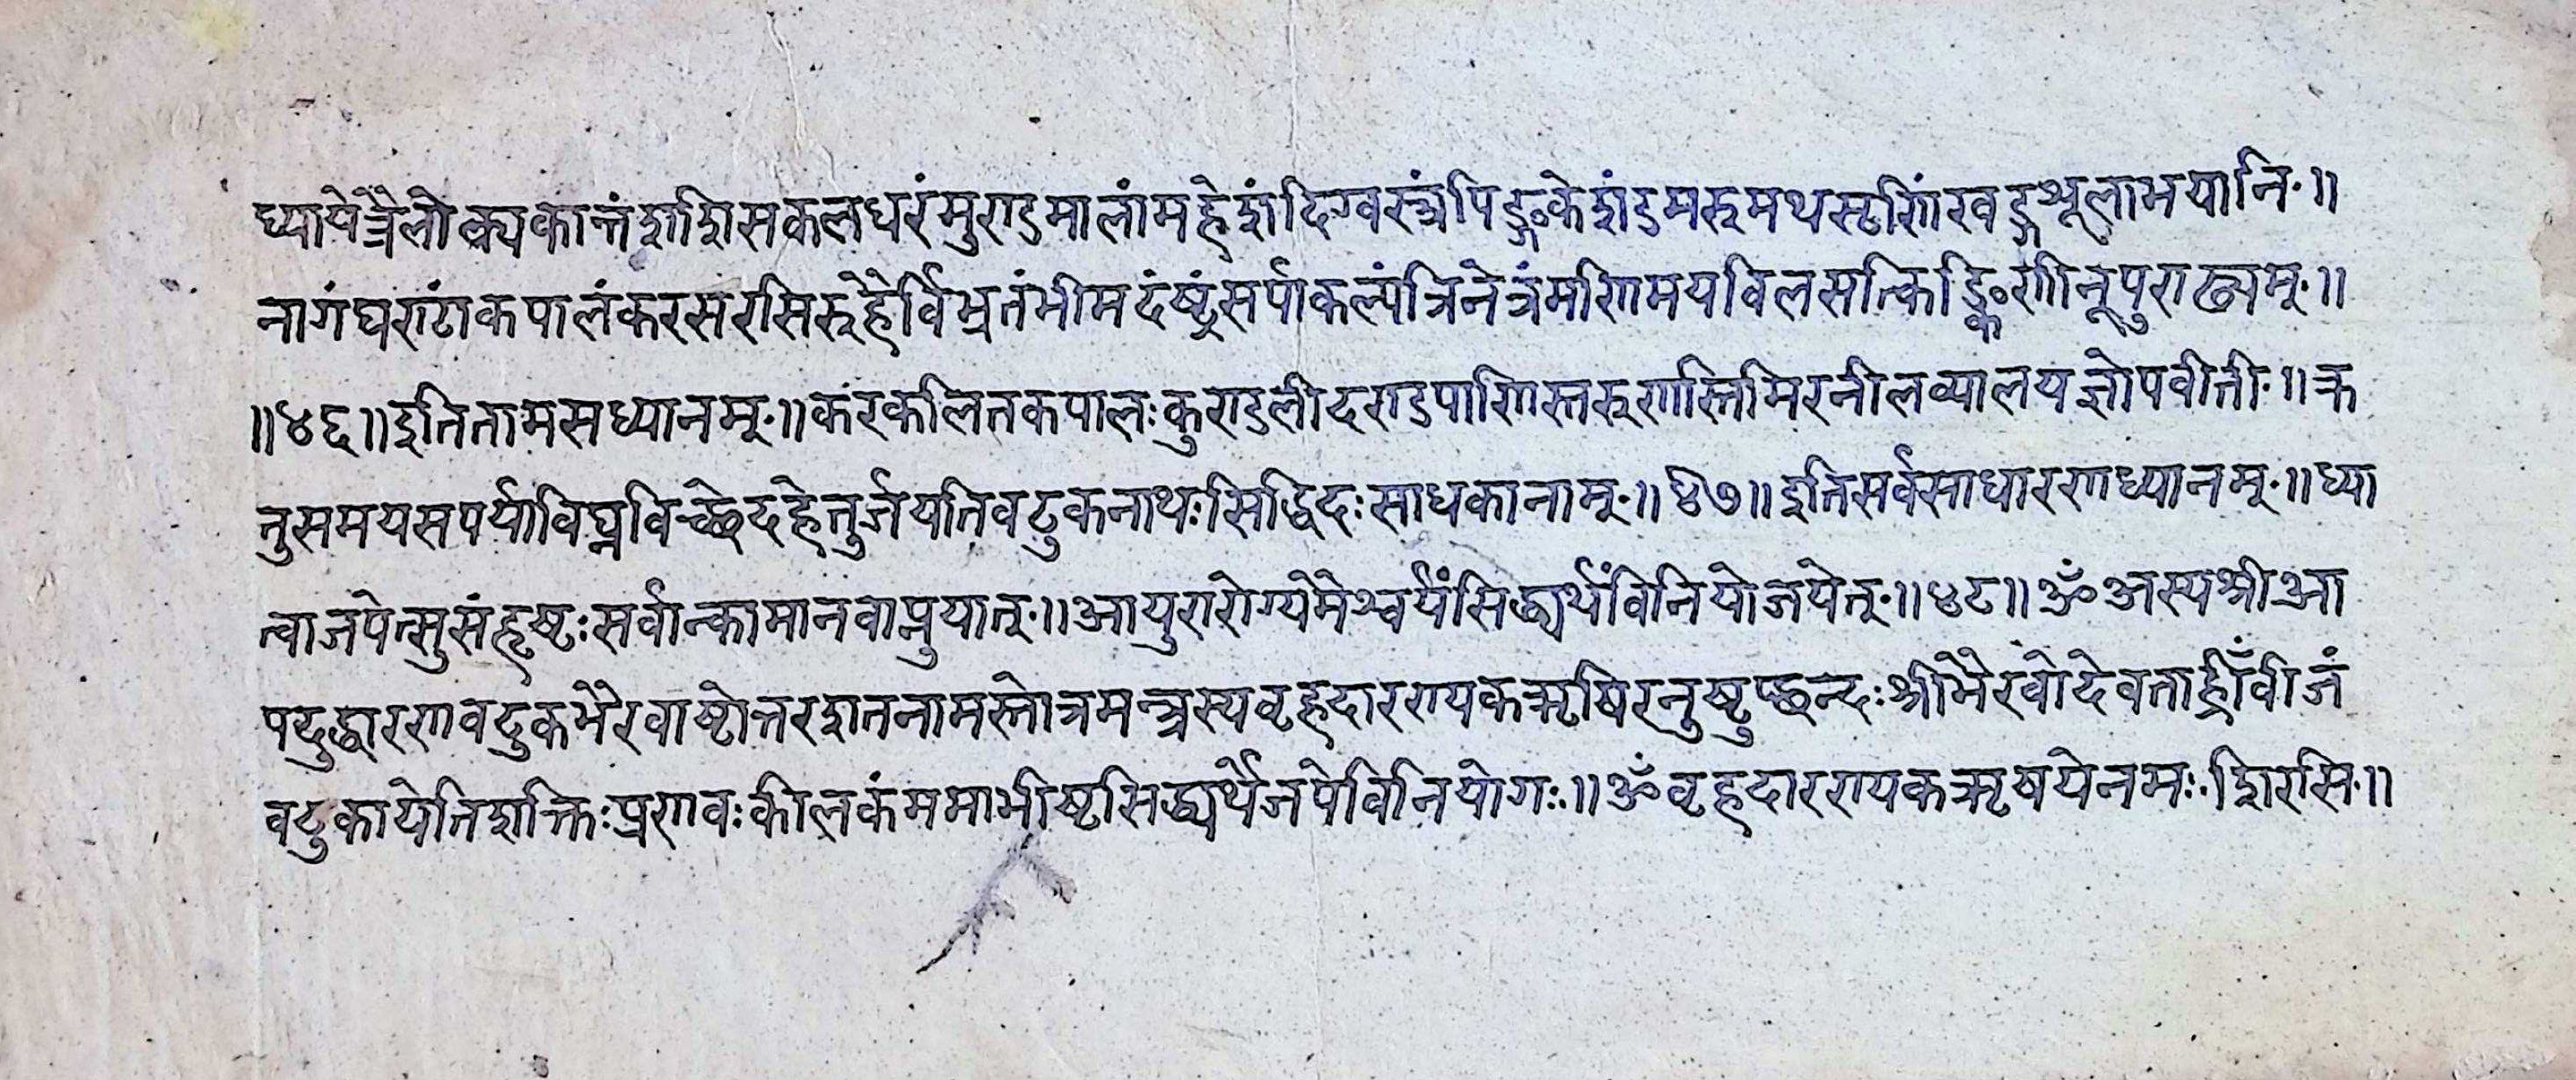 ध्यायेन्नैलोक्यकान्तंशशिसकलधरंमुण्डमालांमहेशंदिग्वस्त्रंपिङ्गकेशंडमरुमथसृणिंखड्गशूलाभयानि॥
नागंघण्टांकपालंकरसरसिरुहैर्विभ्रतंभीमदंष्ट्रंसर्पाकल्पंत्रिनेत्रंमणिमयविलसत्किङ्किणीनूपुराढ्यम्॥
॥४६॥इतितामसध्यानम्॥करकलितकपालःकुण्डलीदण्डपाणिस्तरुणस्तिमिरनीलव्यालयज्ञोपवीती॥क्र
तुसमयसपर्याविघ्नविच्छेदहेतुर्जयतिवटुकनाथःसिद्धिदःसाधकानाम्॥४७॥इतिसर्वसाधारणध्यानम्॥ध्या
त्वाजपेत्सुसंहृष्टःसर्वान्कामानवाप्नुयात्॥आयुरारोग्यमैश्वर्यंसिद्ध्यर्थंविनियोजयेत्॥४८॥ॐअस्यश्रीआ
पदुद्धारणवटुकभैरवाष्टोत्तरशतनामस्तोत्रमन्त्रस्यवृहदारण्यकऋषिरनुष्टुप्छन्दःश्रीभैरवोदेवताह्रीँवीजं
वटुकायेतिशक्तिःप्रणवःकीलकंममाभीष्टसिद्ध्यर्थेजपेविनियोगः॥ॐवृहदारण्यकऋषयेनमःशिरसि॥